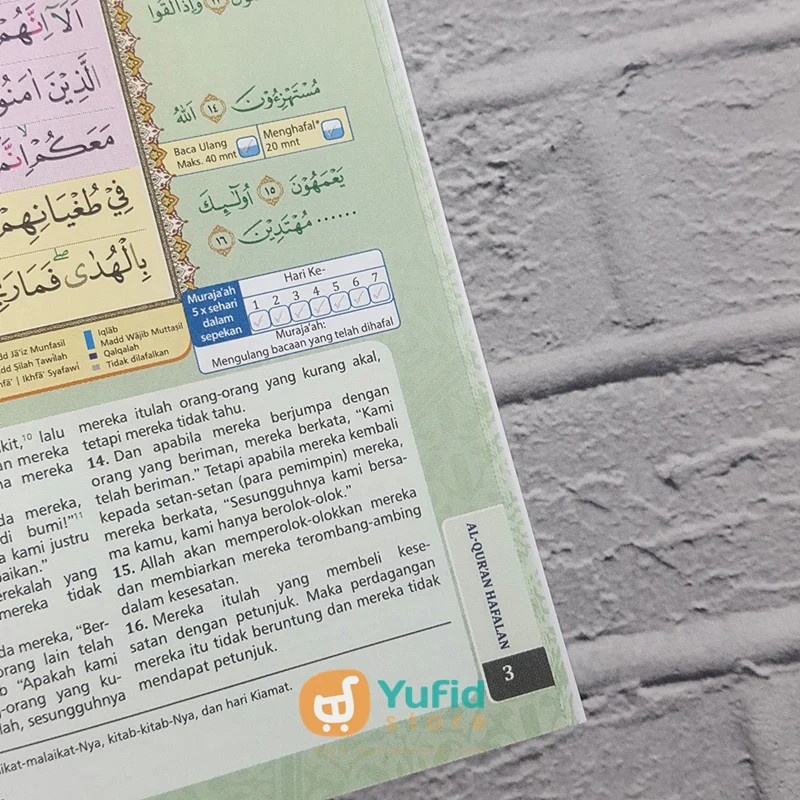 الَآ اِنَّهُمْ
وَاِذَا لَقُوا
الَّذِيْنَ اٰمَنُوْا
مُسْتَهْزِءُوْنَ ١٤ اَللّٰهُ
مَعَكُمْ اِنَّمَا
Baca Ulang
Maks. 40 mnt
Menghafal*
20 mnt
فِيْ طُغْيَانِهِمْ
يَعْمَهُوْنَ ١٥ اُولٰۤىِٕكَ
...... مُهْتَدِيْنَ ١٦
بِالْهُدٰى فَمَا
Muraja'ah
5 x sehari
dalam
sepekan
Hari Ke-
1 2 3 4 5 6 7
Muraja'ah:
Mengulang bacaan yang telah dihafal
Jā'iz Munfasil
Ṣilah Ṭawīlah
Ikhfā' Syafawi
Iqlāb
Madd Wājib Muttaṣil
Qalqalah
Tidak dilafalkan
lalu
mereka
mereka
mereka,
di bumi!"¹¹
kami justru
yang
mereka tidak
mereka, "Ber-
orang lain telah
"Apakah kami
yang ku-
sesungguhnya
mereka itulah orang-orang yang kurang akal,
tetapi mereka tidak tahu.
14. Dan apabila mereka berjumpa dengan
orang yang beriman, mereka berkata, "Kami
telah beriman." Tetapi apabila mereka kembali
kepada setan-setan (para pemimpin) mereka,
mereka berkata, "Sesungguhnya kami bersa-
ma kamu, kami hanya berolok-olok."
15. Allah akan memperolok-olokkan mereka
dan membiarkan mereka terombang-ambing
dalam kesesatan.
16. Mereka itulah yang membeli kese-
satan dengan petunjuk. Maka perdagangan
mereka itu tidak beruntung dan mereka tidak
mendapat petunjuk.
kitab-kitab-Nya, dan hari Kiamat.
AL-QUR'AN HAFALAN
3
Yufid
store